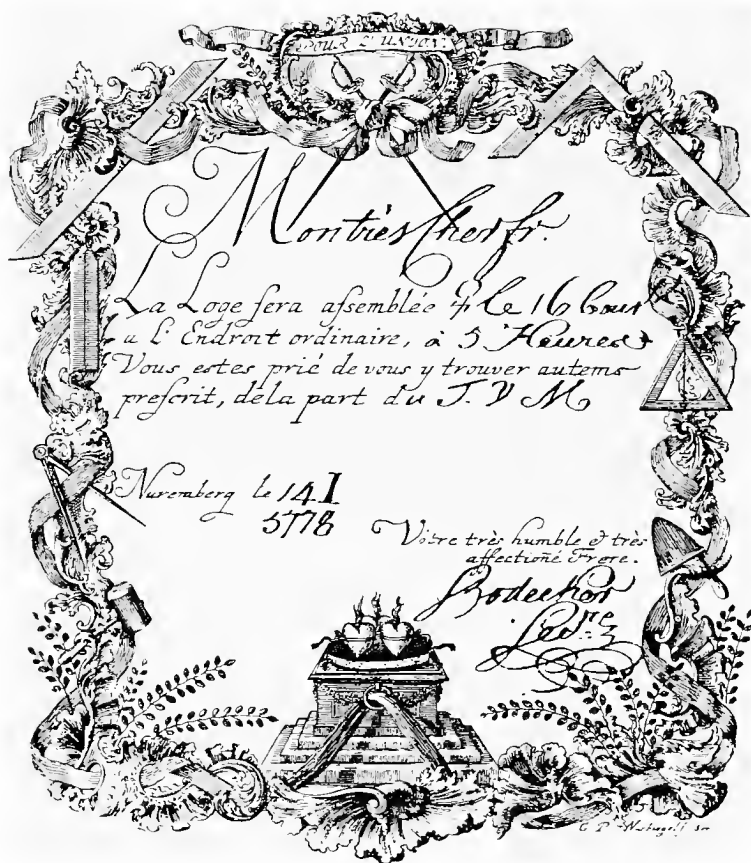 POUR L'UNION
Mon très Cher fr.
La Loge sera assemblée ♃ le 16 Cour
a L'Endroit ordinaire, à 5 Heures
Vous estes prié de vous y trouver autems
prescrit, dela part du T. V M
Nuremberg le 14 I
5778
Vôtre très humble & très
affectioné Frere.
Secre